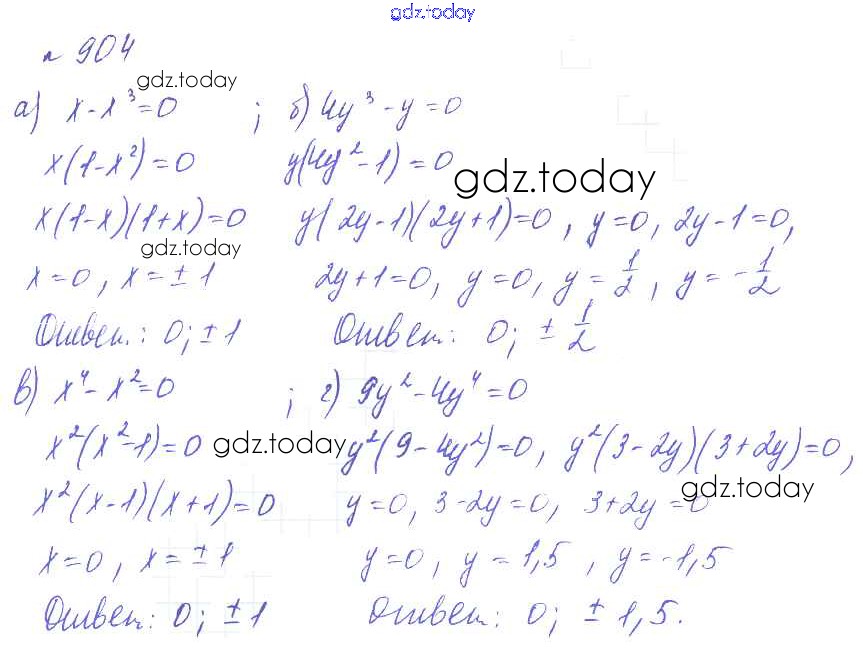 gdz.today
№ 904
gdz.today
а) x - x³ = 0 ; б) 4y³ - y = 0
x(1 - x²) = 0 y(4y² - 1) = 0
gdz.today
x(1-x)(1+x) = 0 y(2y-1)(2y+1) = 0, y = 0, 2y-1 = 0,
gdz.today
x = 0, x = ± 1 2y+1 = 0, y = 0, y = 1/2, y = -1/2
Ответ: 0; ± 1 Ответ: 0; ± 1/2
в) x⁴ - x² = 0 ; г) 9y² - 4y⁴ = 0
x²(x²-1) = 0 gdz.today y²(9 - 4y²) = 0, y²(3 - 2y)(3 + 2y) = 0,
gdz.today
x²(x-1)(x+1) = 0 y = 0, 3-2y = 0, 3+2y = 0
x = 0, x = ± 1 y = 0, y = 1,5, y = -1,5
Ответ: 0; ± 1 Ответ: 0; ± 1,5.